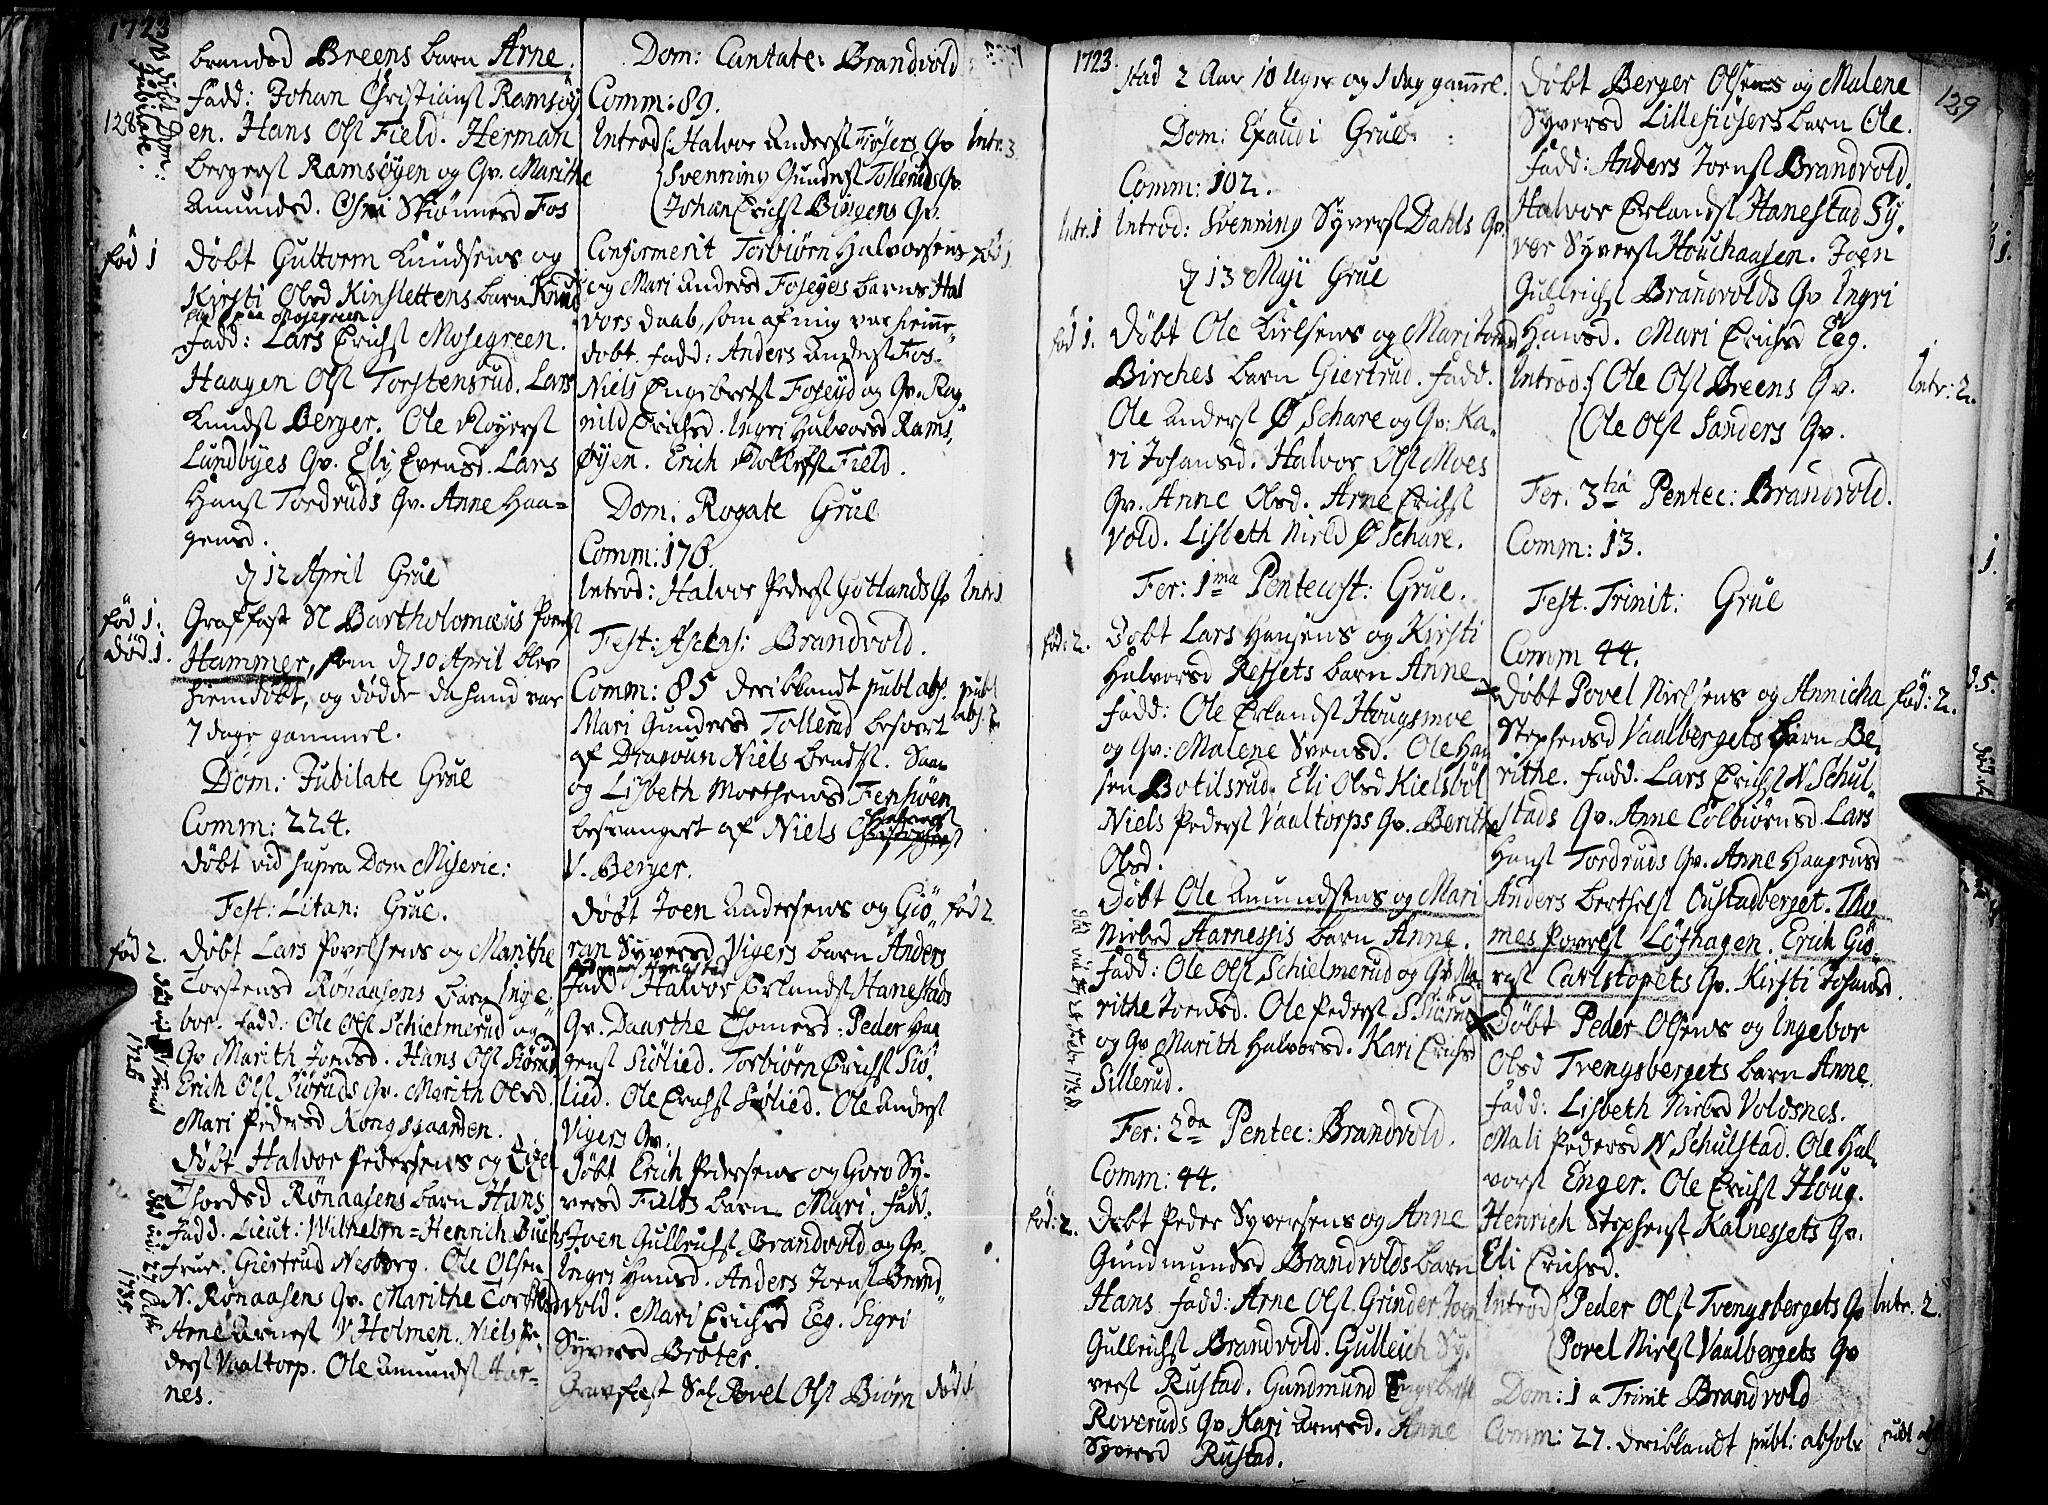 1723
128
brandsd Breens barn Arne.
Fadd: Johan Christianst Ramsöy
en. Hans Olst Field. Herman
bergerst Ramsøyen og Qv. Marithe
Amundsd. Skönnerd Fos
fød 1
Døbt Guttorm Knudsens og
Kirsti Olsd Kinslettens barn Knud
paa Mosegreen
Fadd: Lars Erichst Mosegreen.
Haagen Olst Torstensrud. Lars
Knudst Berger. Ole Røyerst
Lundbyes Qv. Eli Evensd. Lars
Hanst Tordruds Qv. Anne Haa=
gensd.
d 12 April Grue
fød 1.
død. 1.
Graffæst N Bartholomæus
Hammer, som d 10 April blev
hiemdøbt, og døde da hand var
7 dage gammel.
Dom: Jubilate Grue
Comm: 224.
døbt vid supra Dom Miseric:
Fest: Litan: Grue.
fød 2.
Døbt Lars Povelsens og Marithe
Torstensd Rønaasens barn Inge
bor. Fadd: Ole Olst Schielmerud og
Qv Marith Joensd. Hans Olst Siørud
Erich Olst Siøruds Qv. Marith Olsd.
Mari Pedersd Kongsgaarden.
1726
Døbt Halvor Pedersens og
Thordsd Rønaasens barn Hans
Fadd. Lieut: Wilhelm=Henrich Buchs
Frue. Giertrud Nesborg. Ole Olsen
N. Rønaasens Qv. Marithe Torstensd
Arne Arnest V. Holmen. Niels Pe
derst Vaaltorp. Ole Amundst Aar=
nes.
1735
Dom: Cantate: Brandvold
Comm: 89.
Introd: Halvor Anderst Tiøsers Qv Intr. 3
Svenning Gunderst Tolleruds Qv.
Johan Erichst Bingens Qv.
Confirmerit Torbiørn Halvorsens fød 1
og Mari Andersd Foseyes barns Hal
vors daab, som af mig var hiemme
døbt. Fadd: Anders Anderst Fos
Niels Engebretst Foseyd og Qv. Rag
nild Erichsd. Ingri Halvorsd Rams
Øyen. Erich Rolfst Field.
Dom: Rogate Grue
Comm: 176.
Introd: Halvor Pederst Gotlands Qv Intr. 1
Fest: Ascens: Brandvold.
Comm: 85 deriblandt publ. abs. publ
abs: 2
Mari Gundersd Tollerud besvært
af Dragoun Niels bendst. Saa
og Lisbeth Mortensd Fensiøen
besvangert af Niels
V. Berger.
Døbt Joen Andersens og Giø fød 2
ran Syversd Vigers barn Anders
Fadd Halvor Erlandst Hanestads
Qv. Daarthe Thomesd: Peder Haa
genst Siølied. Torbiørn Erichst Siø
lied. Ole Erichst Siølied. Ole Anderst
Vigers Qv.
Døbt Erich Pedersens og Goro Sy
versd Fields barn Mari. Fadd.
Joen Gulbrichst Brandvold og Qv.
Ingri Hansd. Anders Joenst Brand
vold. Mari Erichsd Eeg. Sigri
Syversd Broter.
Gravfæst Sal Povel Olst Biørn død 1
1723
129
stad 2 Aar 10 Uger og 1 dag gamel.
Dom: Exaudi Grue
Comm: 102.
Intr. 1
Introd: Svenning Syverst Dahls Qv.
d 13 Maji Grue
fød 1.
Døbt Ole Kielsens og Mari
Birches barn Giertrud. Fadd.
Ole Anderst Ø Schare og Qv: Ka
ri Johansd. Halvor Olst Moes
Qv. Anne Olsd. Arne Erichst
Vold. Lisbeth Nielsd Ø Schare.
Fer: 1ma Pentecost: Grue.
fød. 2.
Døbt Lars Hansens og Kirsti
Halvorsd Ressets barn Anne
Fadd: Ole Erlandst Hougsmoe
og Qv: Malene Svensd. Ole Han
sen Botilsrud. Eli Olsd Kielsbøl
Niels Pederst Vaaltorps Qv. Berithe
Olsd.
Døbt Ole Amundsens og Mari
Nielsd Aarnessis barn Anne.
Fadd: Ole Olst Schielmerud og Qv Ma
rithe Joensd. Ole Pederst S. Siørud
og Qv Marith Halvorsd. Kari Erichsd
Sillerud.
28 Febr. 1738.
Fer: 2da Pentec: Brandvold.
Comm: 44.
fød: 2.
Døbt Peder Syversens og Anne
Gundmundsd Brandvolds barn
Hans. Fadd: Arne Olst Grinder. Joen
Gullrichst Brandvold. Gullich Sy
verst Rustad. Gundmund
Roveruds Qv Kari Arnesd. Anne
Syversd Rustad.
Døbt Berger Olsens og Malene
Syversd Lillesiøsers barn Ole.
Fadd: Anders Joenst Brandvold.
Halvor Erlandst Hanestad Sy
ver Syverst Houchaasen. Joen
Gullrichst Brandvolds Qv Ingri
Hansd. Mari Erichsd Eeg.
Introd: Ole Olst Breens Qv. Intr: 2.
Ole Olst Sanders Qv.
Fer: 3tia Pentec: Brandvold.
Comm: 13.
Fest. Trinit: Grue
Comm 44.
Døbt Povel Nielsens og Annicha fød: 2.
Stephensd Vaalbergets barn Be
rithe. Fadd: Lars Erichst N Schul
stads Qv. Anne Colbiørnsd. Lars
Hanst Tordruds Qv. Anne Haagensd
Anders Berthelst Oustadberget. Tho
mes Povelst Löfhagen. Erich Giö
rgst Carlstopets Qv. Kirsti Johansd.
Døbt Peder Olsens og Ingebor
Olsd Tvengsbergets barn Anne
Fadd: Lisbeth Nielsd Voldsnes.
Mali Pedersd N Schulstad. Ole Hal
vorst Enger. Ole Erichst Houg.
Henrich Stephenst Kalnessets Qv.
Eli Erichsd.
Introd Peder Olst Tvengsbergets Qv Intr. 2.
Povel Nielst Vaalbergets Qv
Dom: 1 a Trinit Brandvold
Comm: 27. deriblandt publ: absolv publ abs